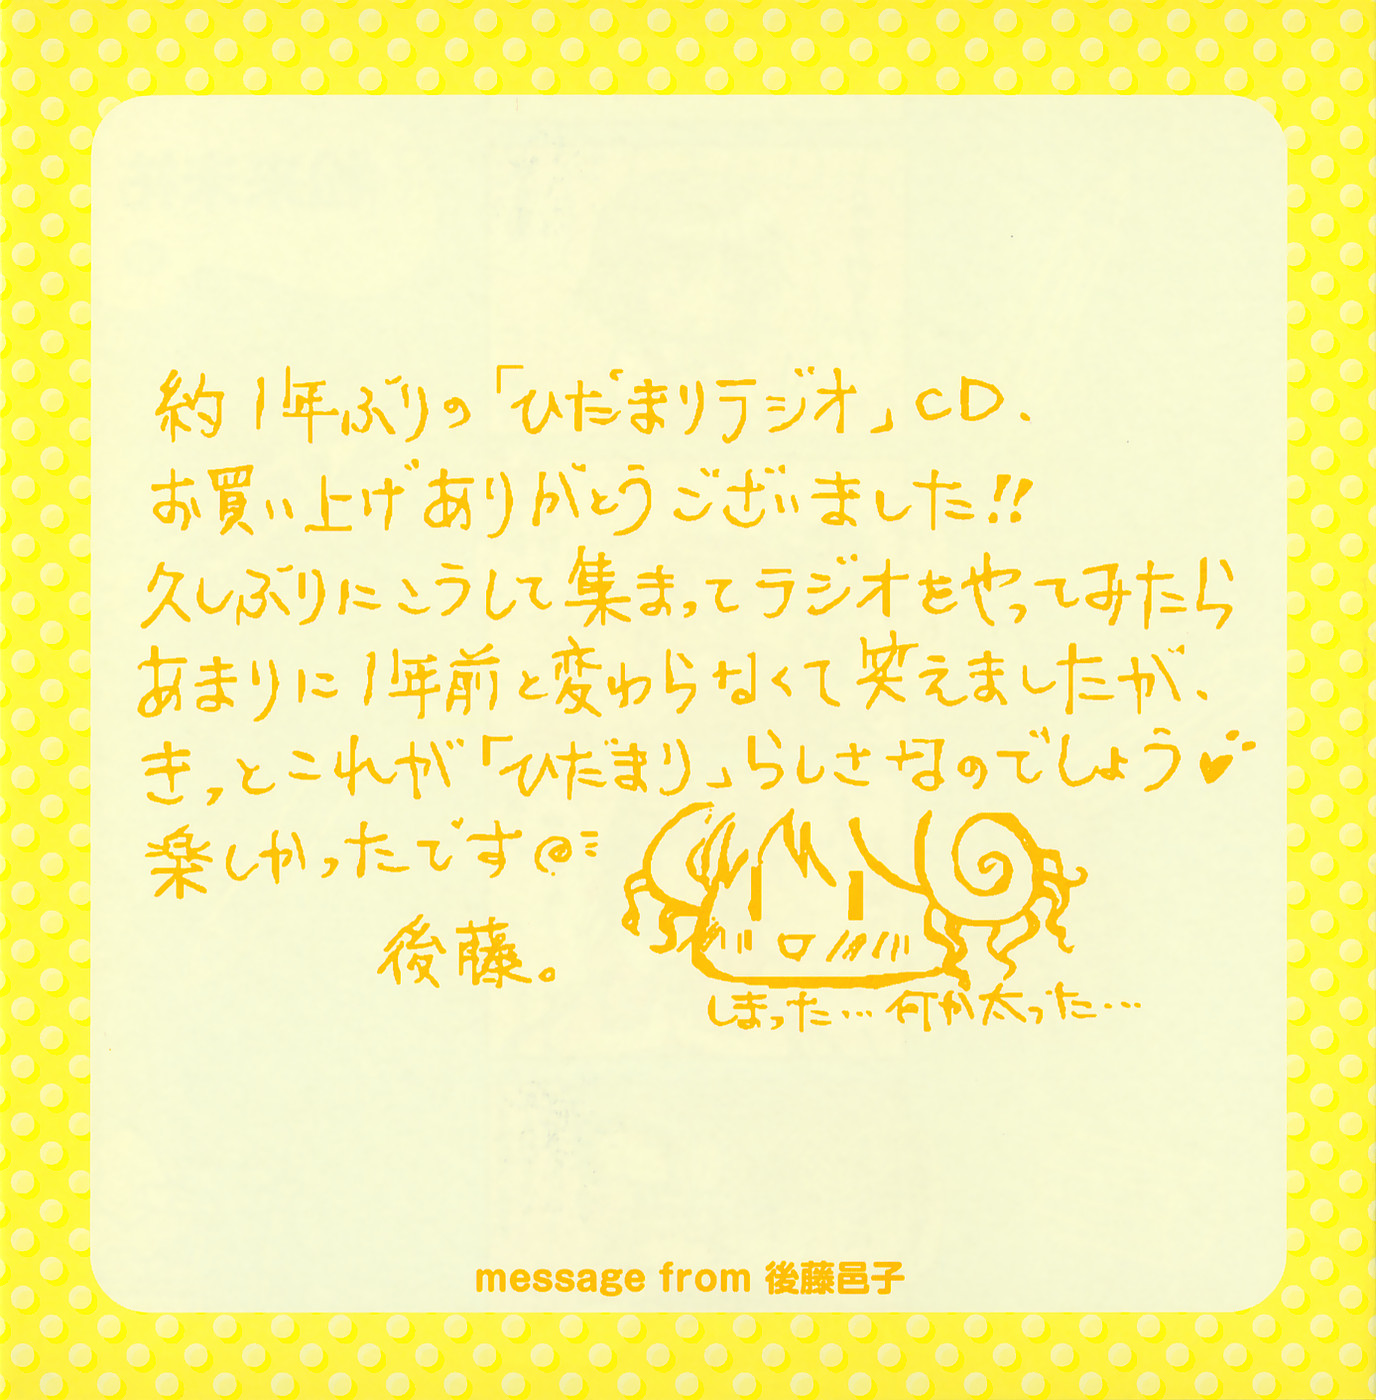 約1年ぶりの「ひだまりラジオ」CD、
お買い上げありがとうございました!!
久しぶりにこうして集まってラジオをやってみたら
あまりに1年前と変わらなくて笑えましたが、
きっとこれが「ひだまり」らしさなのでしょう♥
楽しかったです@
後藤。
しまった…何か太った…
message from 後藤邑子